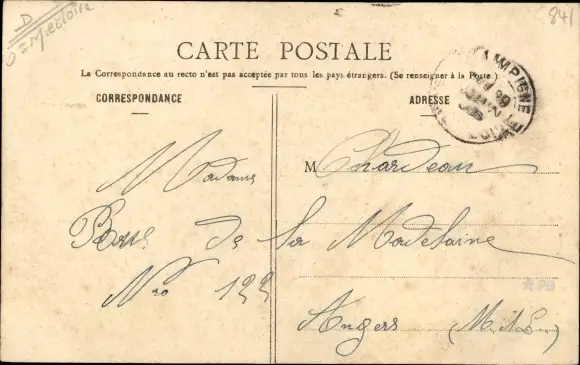 D = Miettoire
841
CARTE POSTALE
La Correspondance au recto n'est pas acceptée par tous les pays étrangers. (Se renseigner à la Poste)
CORRESPONDANCE
ADRESSE
CHAMPIGNE
Madame
M Chardeau
Rue de la Madelaine
Nro 122
Angers (M. et L.)